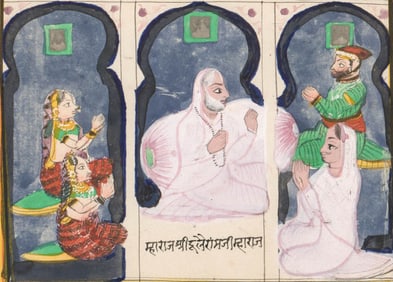 म्हाराज श्री दुलैरामजी म्हाराज